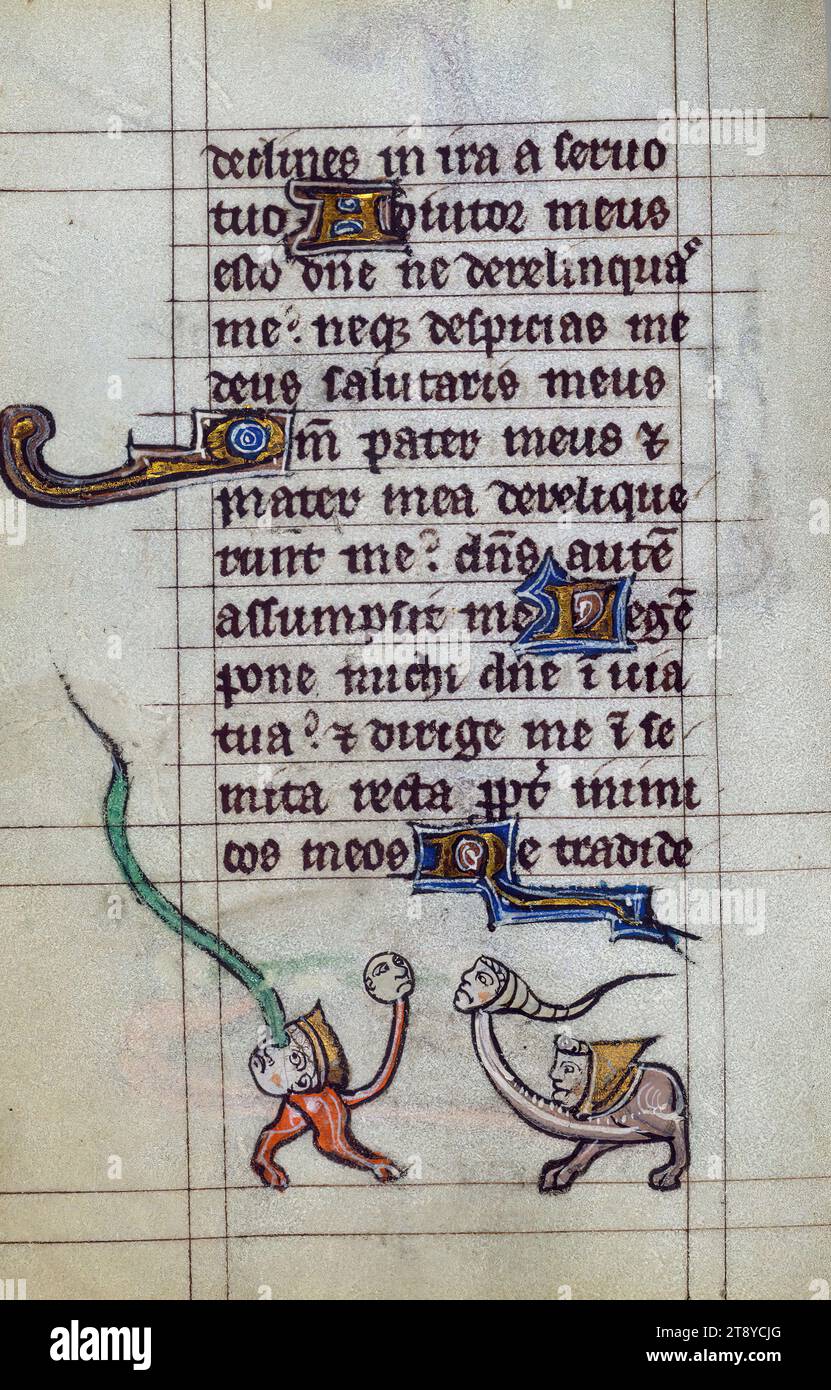 declines in ira a seruo
tuo Adiutor meus
esto dn̄e ne derelinquas
me? neq; despicias me
deus salutaris meus
Qm̄ pater meus ⁊
mater mea derelique
runt me? dn̄s autē
assumpsit me Legē
pone michi dn̄e ī uia
tua? ⁊ dirige me ī se
mita recta ppt̓ inimi
cos meos Ne tradide
alamy
alamy
Image ID: 2T8YCJG
www.alamy.com